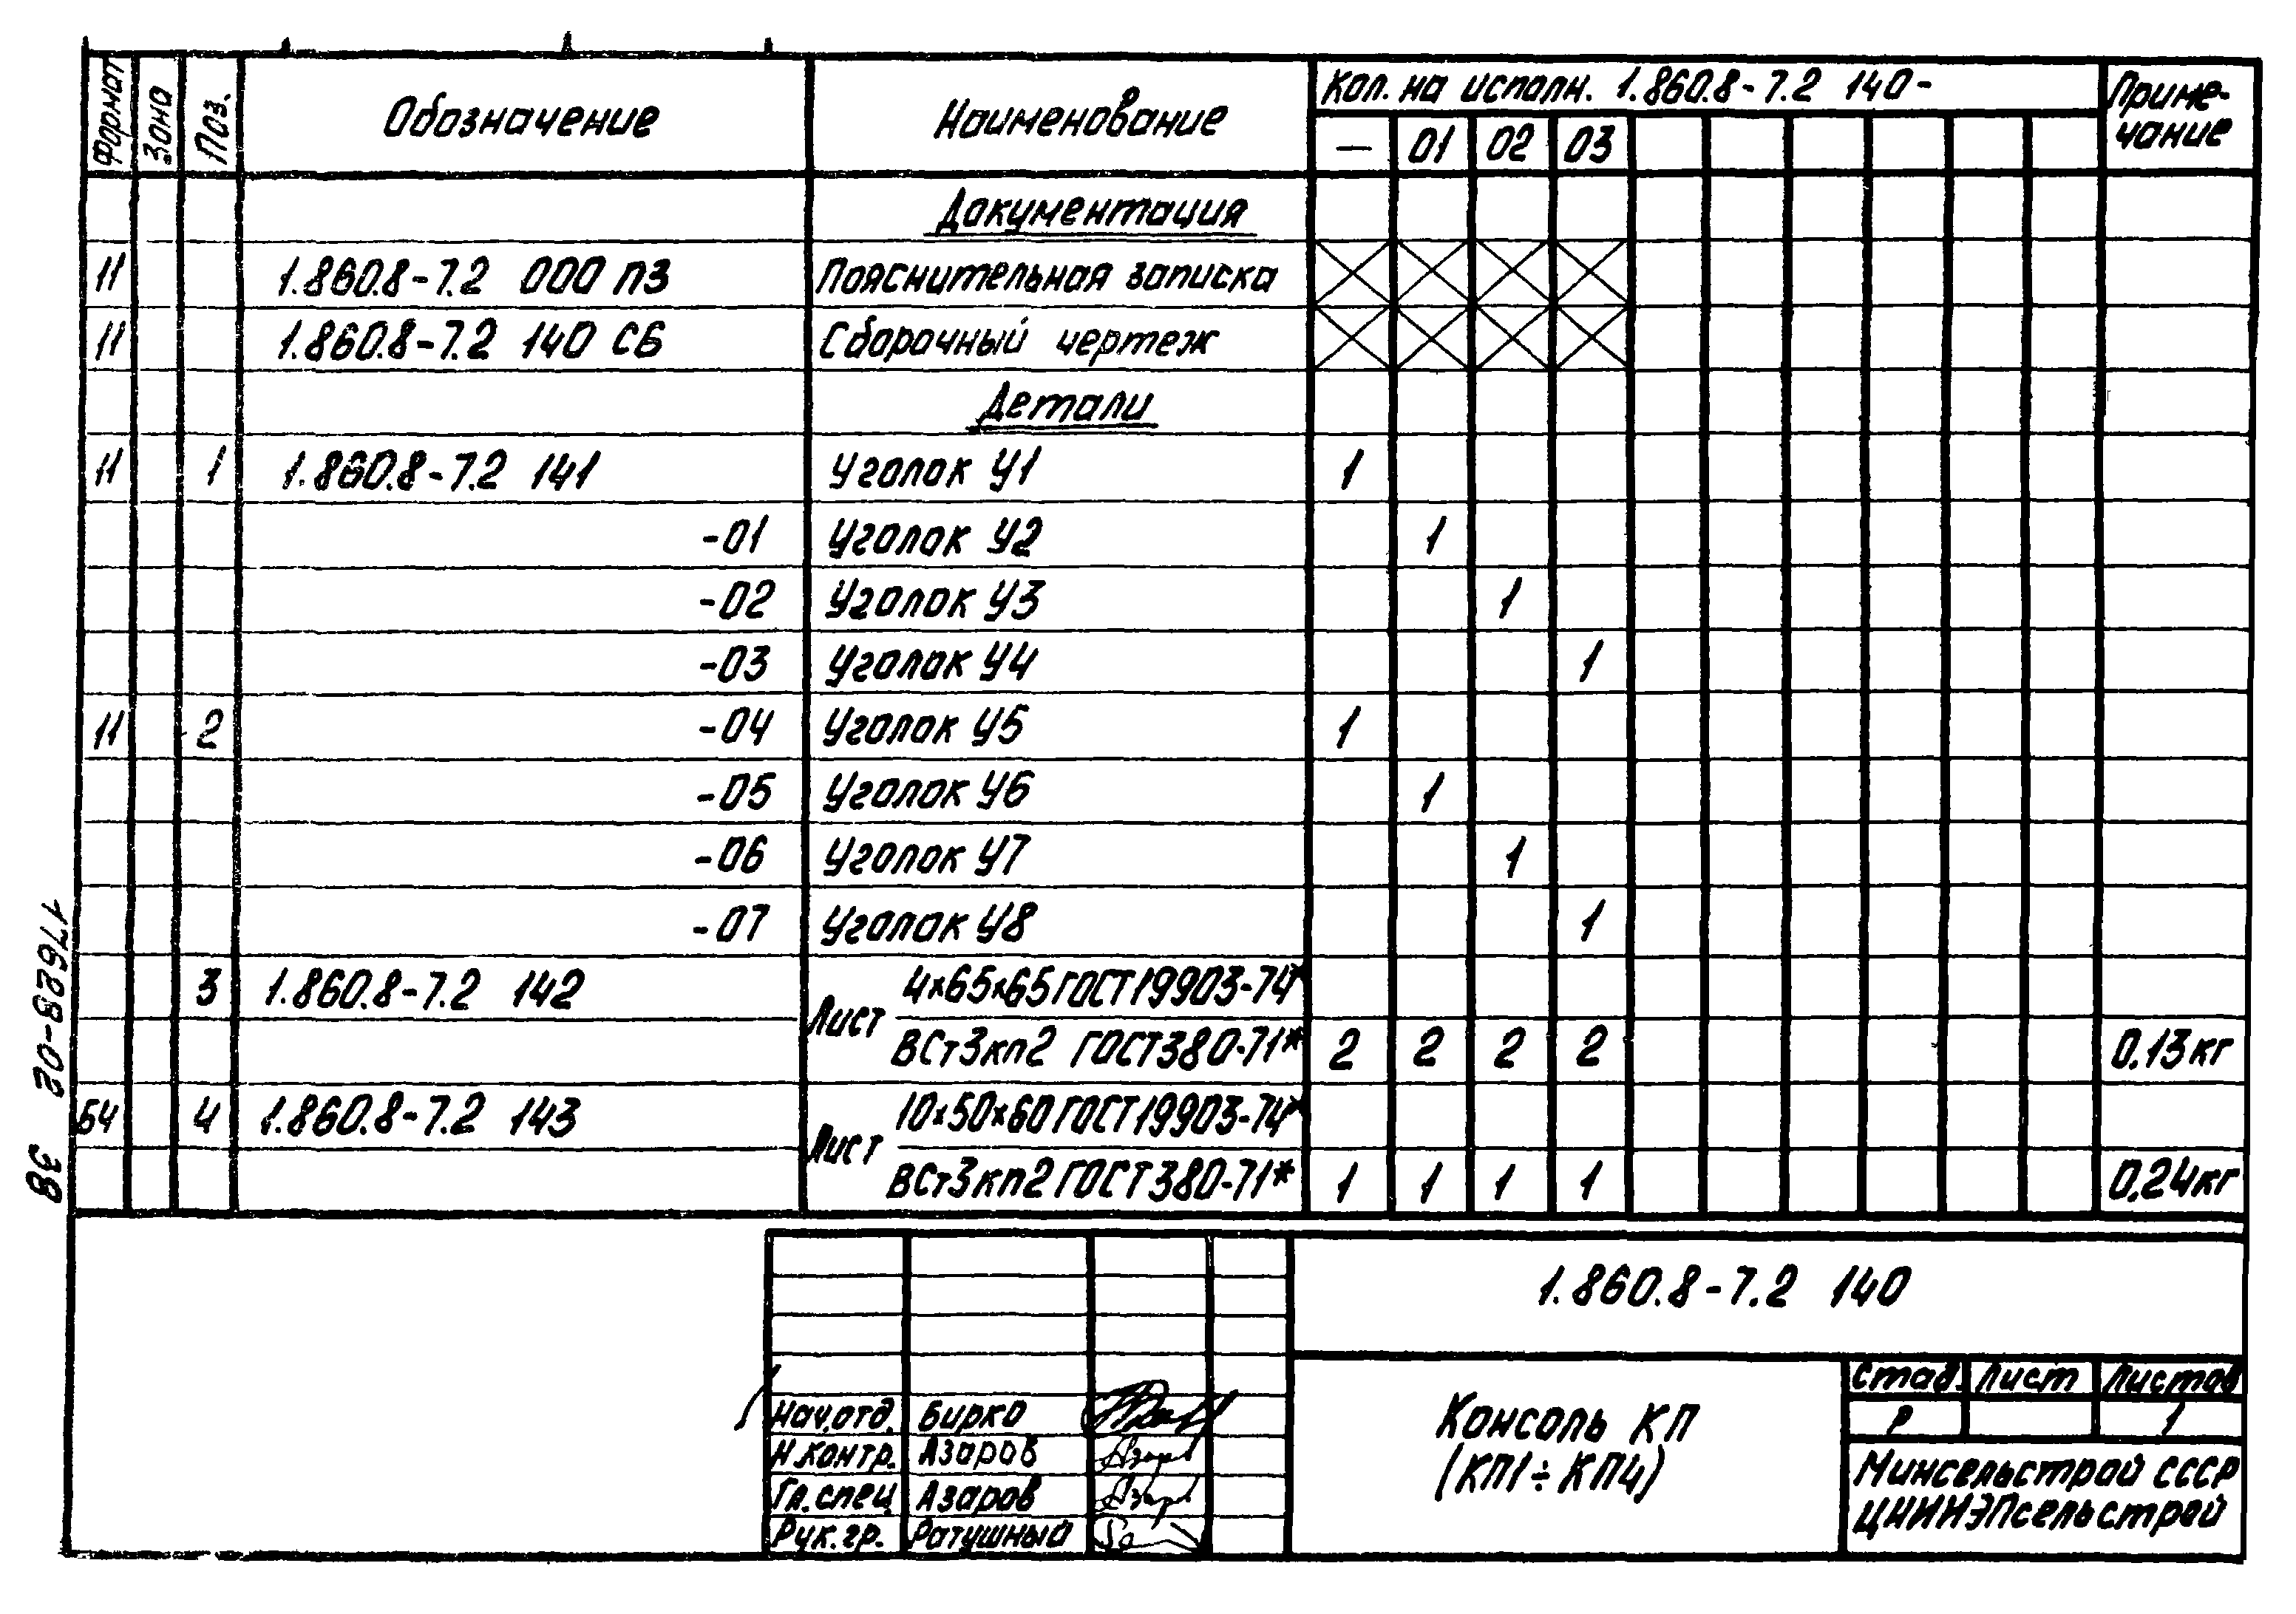 Формат Зона Поз. Обозначение Наименование Кол. на исполн. 1.860.8-7.2 140- Приме-
чание
— 01 02 03
Документация
11 1.860.8-7.2 000 ПЗ Пояснительная записка
11 1.860.8-7.2 140 СБ Сборочный чертеж
Детали
11 1 1.860.8-7.2 141 Уголок У1 1
-01 Уголок У2 1
-02 Уголок У3 1
-03 Уголок У4 1
11 2 -04 Уголок У5 1
-05 Уголок У6 1
-06 Уголок У7 1
-07 Уголок У8 1
3 1.860.8-7.2 142 Лист 4×65×65 ГОСТ 19903-74*
ВСт3кп2 ГОСТ 380-71* 2 2 2 2 0.13 кг
БЧ 4 1.860.8-7.2 143 Лист 10×50×60 ГОСТ 19903-74*
ВСт3кп2 ГОСТ 380-71* 1 1 1 1 0.24 кг
17628-02 38
1.860.8-7.2 140
Нач.отд. Бирко
Н.контр. Азаров
Гл.спец Азаров
Рук.гр. Ратушный
Консоль КП
(КП1÷КП4)
Стад. Лист Листов
Р 1
Минсельстрой СССР
ЦНИИЭПсельстрой